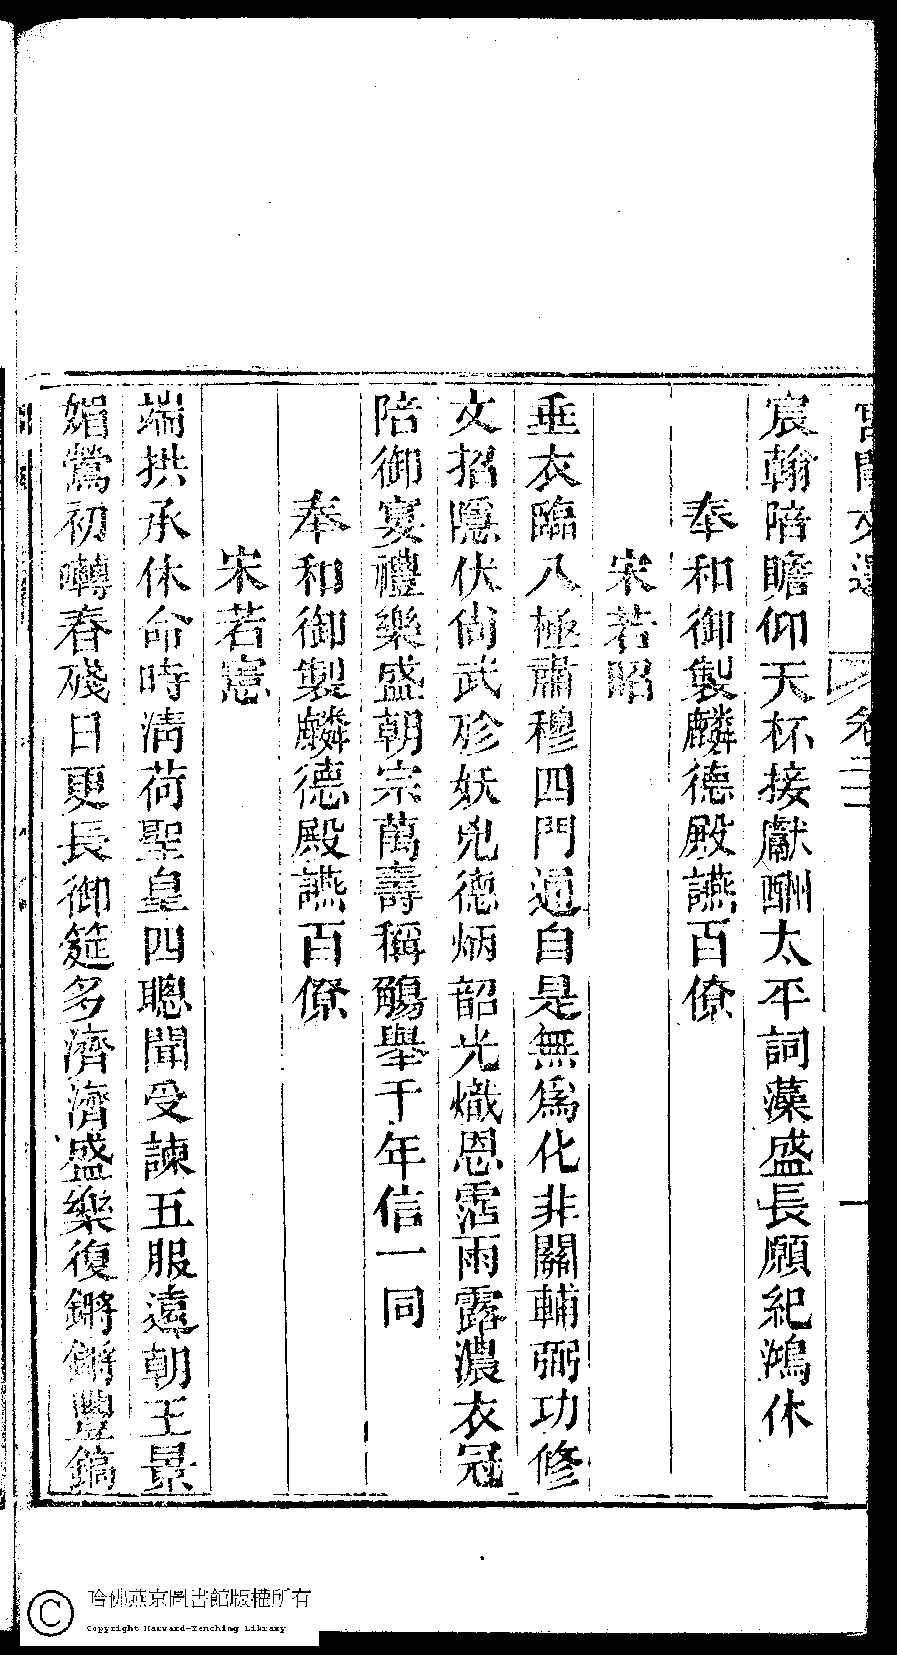 宸翰陪瞻仰天杯接獻酬太平詞藻盛長願紀鴻休
奉和御製麟德殿讌百僚
宋若昭
垂衣臨八極肅穆四門通自是無爲化非關輔弼功修
文招隱伏尙武殄妖兇德炳韶光熾恩霑雨露濃衣冠
陪御宴禮樂盛朝宗萬壽稱觴舉千年信一同
奉和御製麟德殿讌百僚
宋若憲
端拱承休命時淸荷聖皇四聰聞受諫五服遠朝王景
媚鶯初囀春殘日更長御筵多濟濟盛樂復鏘鏘豐鎬
哈佛燕京圖書館版權所有
Copyright Harvard-Yenching Library